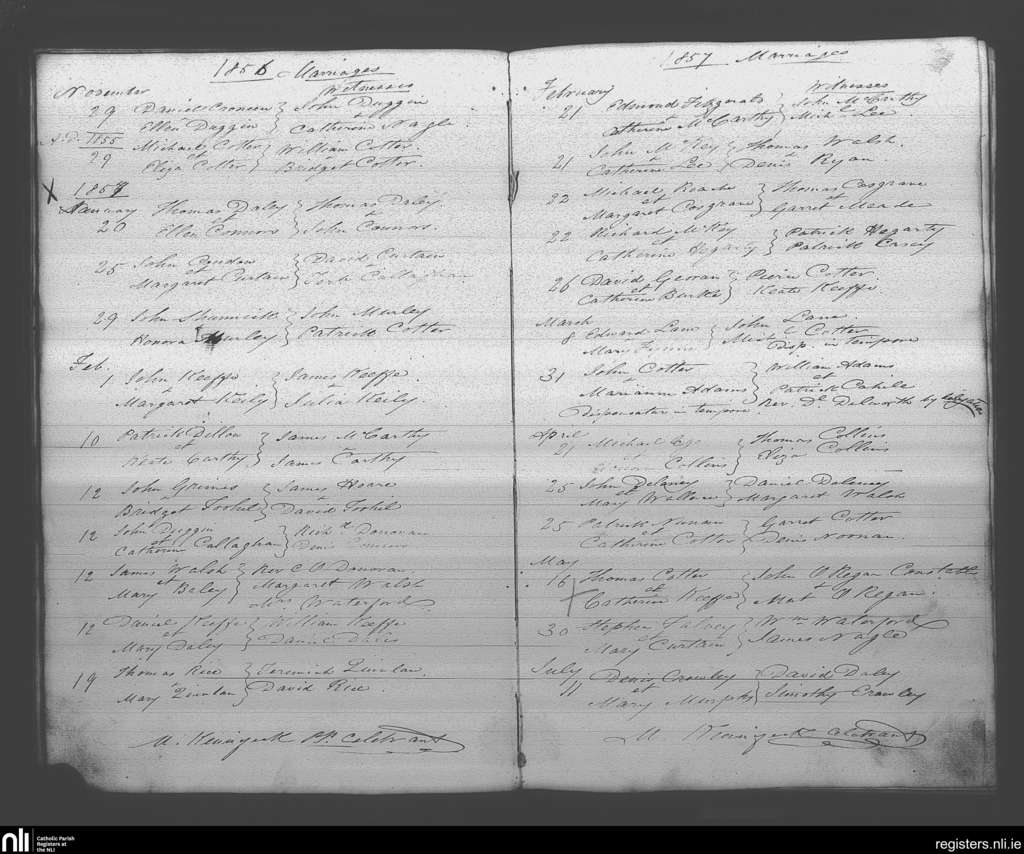 1856 Marriages
November Witnesses
29 Daniel Croneen } John Duggin
Ellen Duggin } Catherine Nagle
1855 Michael Cotter } William Cotter
29 et
Eliza Cotter } Bridget Cotter
X 1857
January Thomas Daley } Thomas Daley
20 et
Ellen Connors } John Connors
25 John } David Curtain
et
Margaret Curtain } Callaghan
29 John } John Murley
Honora Hurley } Patrick Cotter
Feb.
1 John Keeffe } James Keeffe
Margaret Keily } Julia Keily
10 Patrick Dillon } James McCarthy
et
Kate Carthy } James Carthy
12 John Grimes } James Hoare
Bridget } David
12 John Duggin } Richd Donovan
et
Catherine Callaghan } Denis Connors
12 James Walsh } Rev C O Donovan
et Margaret Walsh
Mary Baley } Mrs Waterford
12 Daniel Keeffe } William Keeffe
et
Mary Daley } Daniel
19 Thomas Rice } Jeremiah Quinlan
Mary Quinlan } David Rice
M. PP. Celebrant
1857 Marriages
February Witnesses
21 Edmond Fitzgerald } John McCarthy
Catherine McCarthy } Michl Lee
21 John McKey } Thomas Walsh
Catherine Lee } Denis Ryan
22 Michael Roache } Thomas Cosgrave
et
Margaret Cosgrave } Garret Meade
22 Richard McKey } Patrick Hegarty
et
Catherine Hegarty } Patrick Casey
26 David } Cotter
et
Catherine Burke } Keate Keeffe
March
8 Edward Lane } John Lane
Mary } Michl Cotter
Disp. in tempore
31 John Cotter } William Adams
et et
Marianne Adams } Patrick Cahile
in tempore Rev. Dl Delworth by
April
21 Michael } Thomas Collins
et
Collins } Eliza Collins
25 John Delaney } Daniel Delaney
et
Mary Wallace } Margaret Walsh
25 Patrick Nunan } Garret Cotter
et
Catherine Cotter } Denis Noonan
May
16 Thomas Cotter } John O Regan Constable
et
Catherine Keeffe } Mat O Regan
30 Stephen } Wm Waterford
et
Mary Curtain } James Nagle
July
11 Denis Crowley } David Daley
et
Mary Murphy } Timothy Crowley
M Celebrant
nli
Catholic Parish
Registers at
the NLI
registers.nli.ie